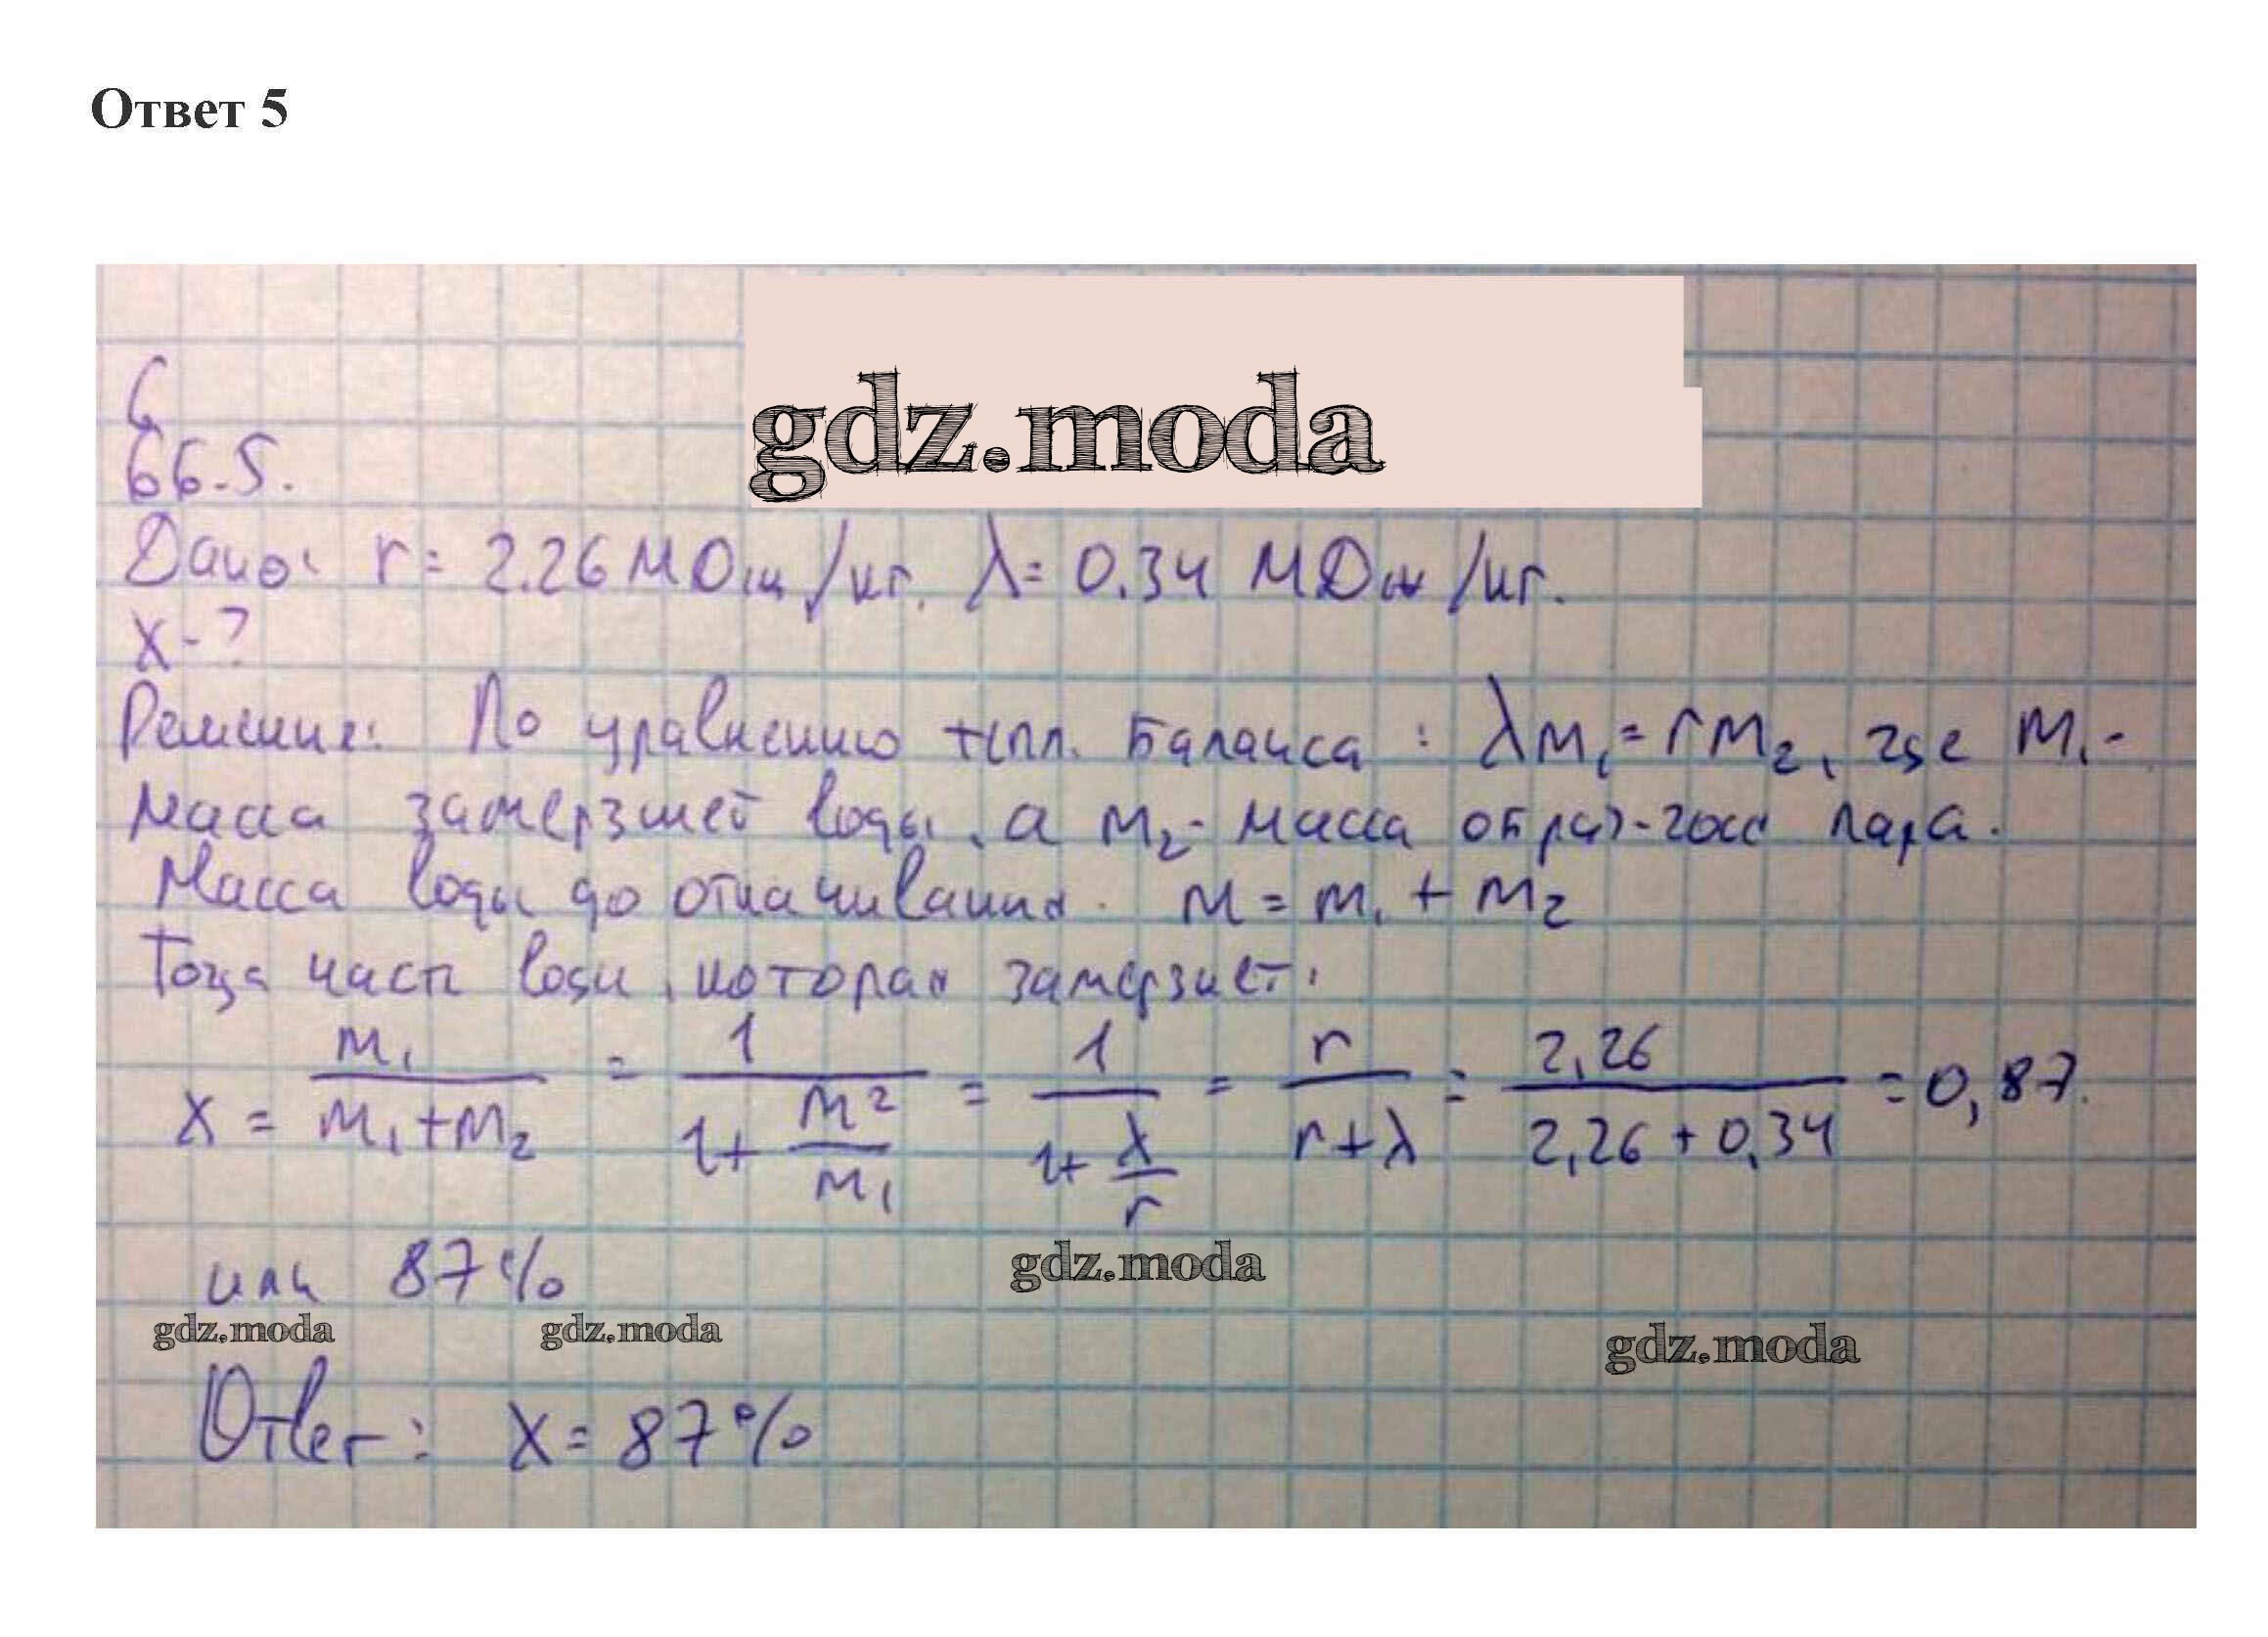 Ответ 5
gdz.moda
66.5.
Дано: r = 2.26 МДж/кг. λ = 0.34 МДж/кг.
X - ?
Решение: По уравнению тепл. баланса: λm₁ = rm₂, где m₁ -
масса замерзшей воды, а m₂ - масса образ-гося пара.
Масса воды до откачивания. m = m₁ + m₂
Тогда часть воды, которая замерзнет:
X = m₁/(m₁+m₂) = 1/(1+m₂/m₁) = 1/(1+λ/r) = r/(r+λ) = 2,26/(2,26+0,34) = 0,87.
или 87%
gdz.moda
gdz.moda gdz.moda gdz.moda
Ответ: X = 87%